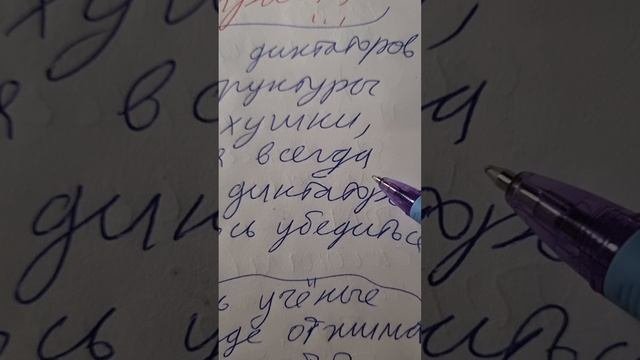 диктаторов
руктуры
хушки,
всегда
диктатор
сь убедиться
учёные
де отжима